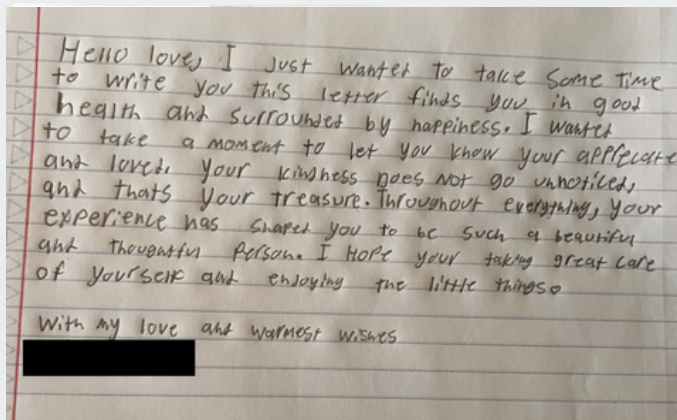 Hello love, I Just wanted to take some time
to write you this letter finds you in good
health and surrounded by happiness. I wanted
to take a moment to let you know your appreciate
and loved. your kindness Does Not go unnoticed,
and thats your treasure. Throughout everything, your
experience has shaped you to be such a beautiful
and thoughtful Person. I Hope your taking great care
of yourself and enjoying the little things.
With my love and warmest wishes